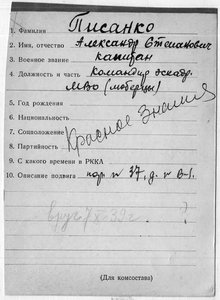 1. Фамилия Писанко
2. Имя, отчество Александр Степанович
3. Военное звание капитан
4. Должность и часть Командир эскадр.
МВО
5. Год рождения
6. Национальность
7. Соцположение
8. Партийность
Красное Знамя
9. С какого времени в РККА
10. Описание подвига пр. 37, д.
(Для комсостава)